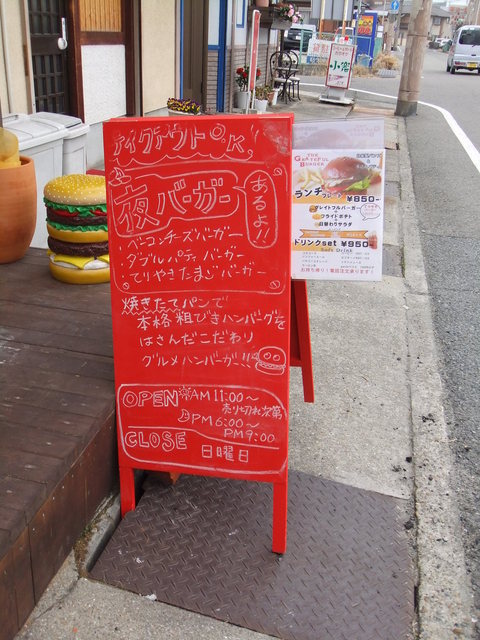 テイクアウトO.K!
夜バーガー
あるよ!!
ベーコンチーズバーガー
ダブルパティバーガー
てりやきたまごバーガー
焼きたてパンで
本格粗びきハンバーグを
はさんだこだわり
グルメハンバーガー!!
OPEN AM11:00〜
売り切れ次第
PM6:00〜
PM9:00
CLOSE 日曜日
THE GRATEFUL BURGER
ランチプレート ¥850-
グレイトフルバーガー
フライドポテト
日替わりサラダ
ドリンクset ¥950-
Soft Drink
お持ち帰り!電話注文承ります!
小窓